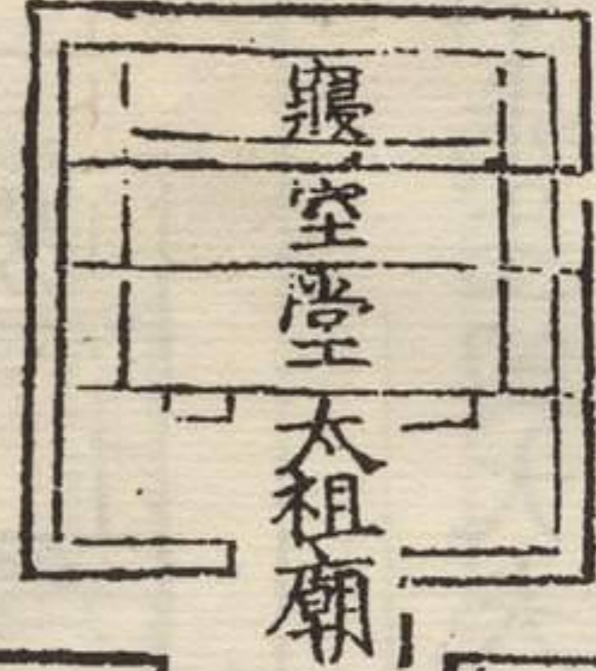 寢
室
堂
太祖廟